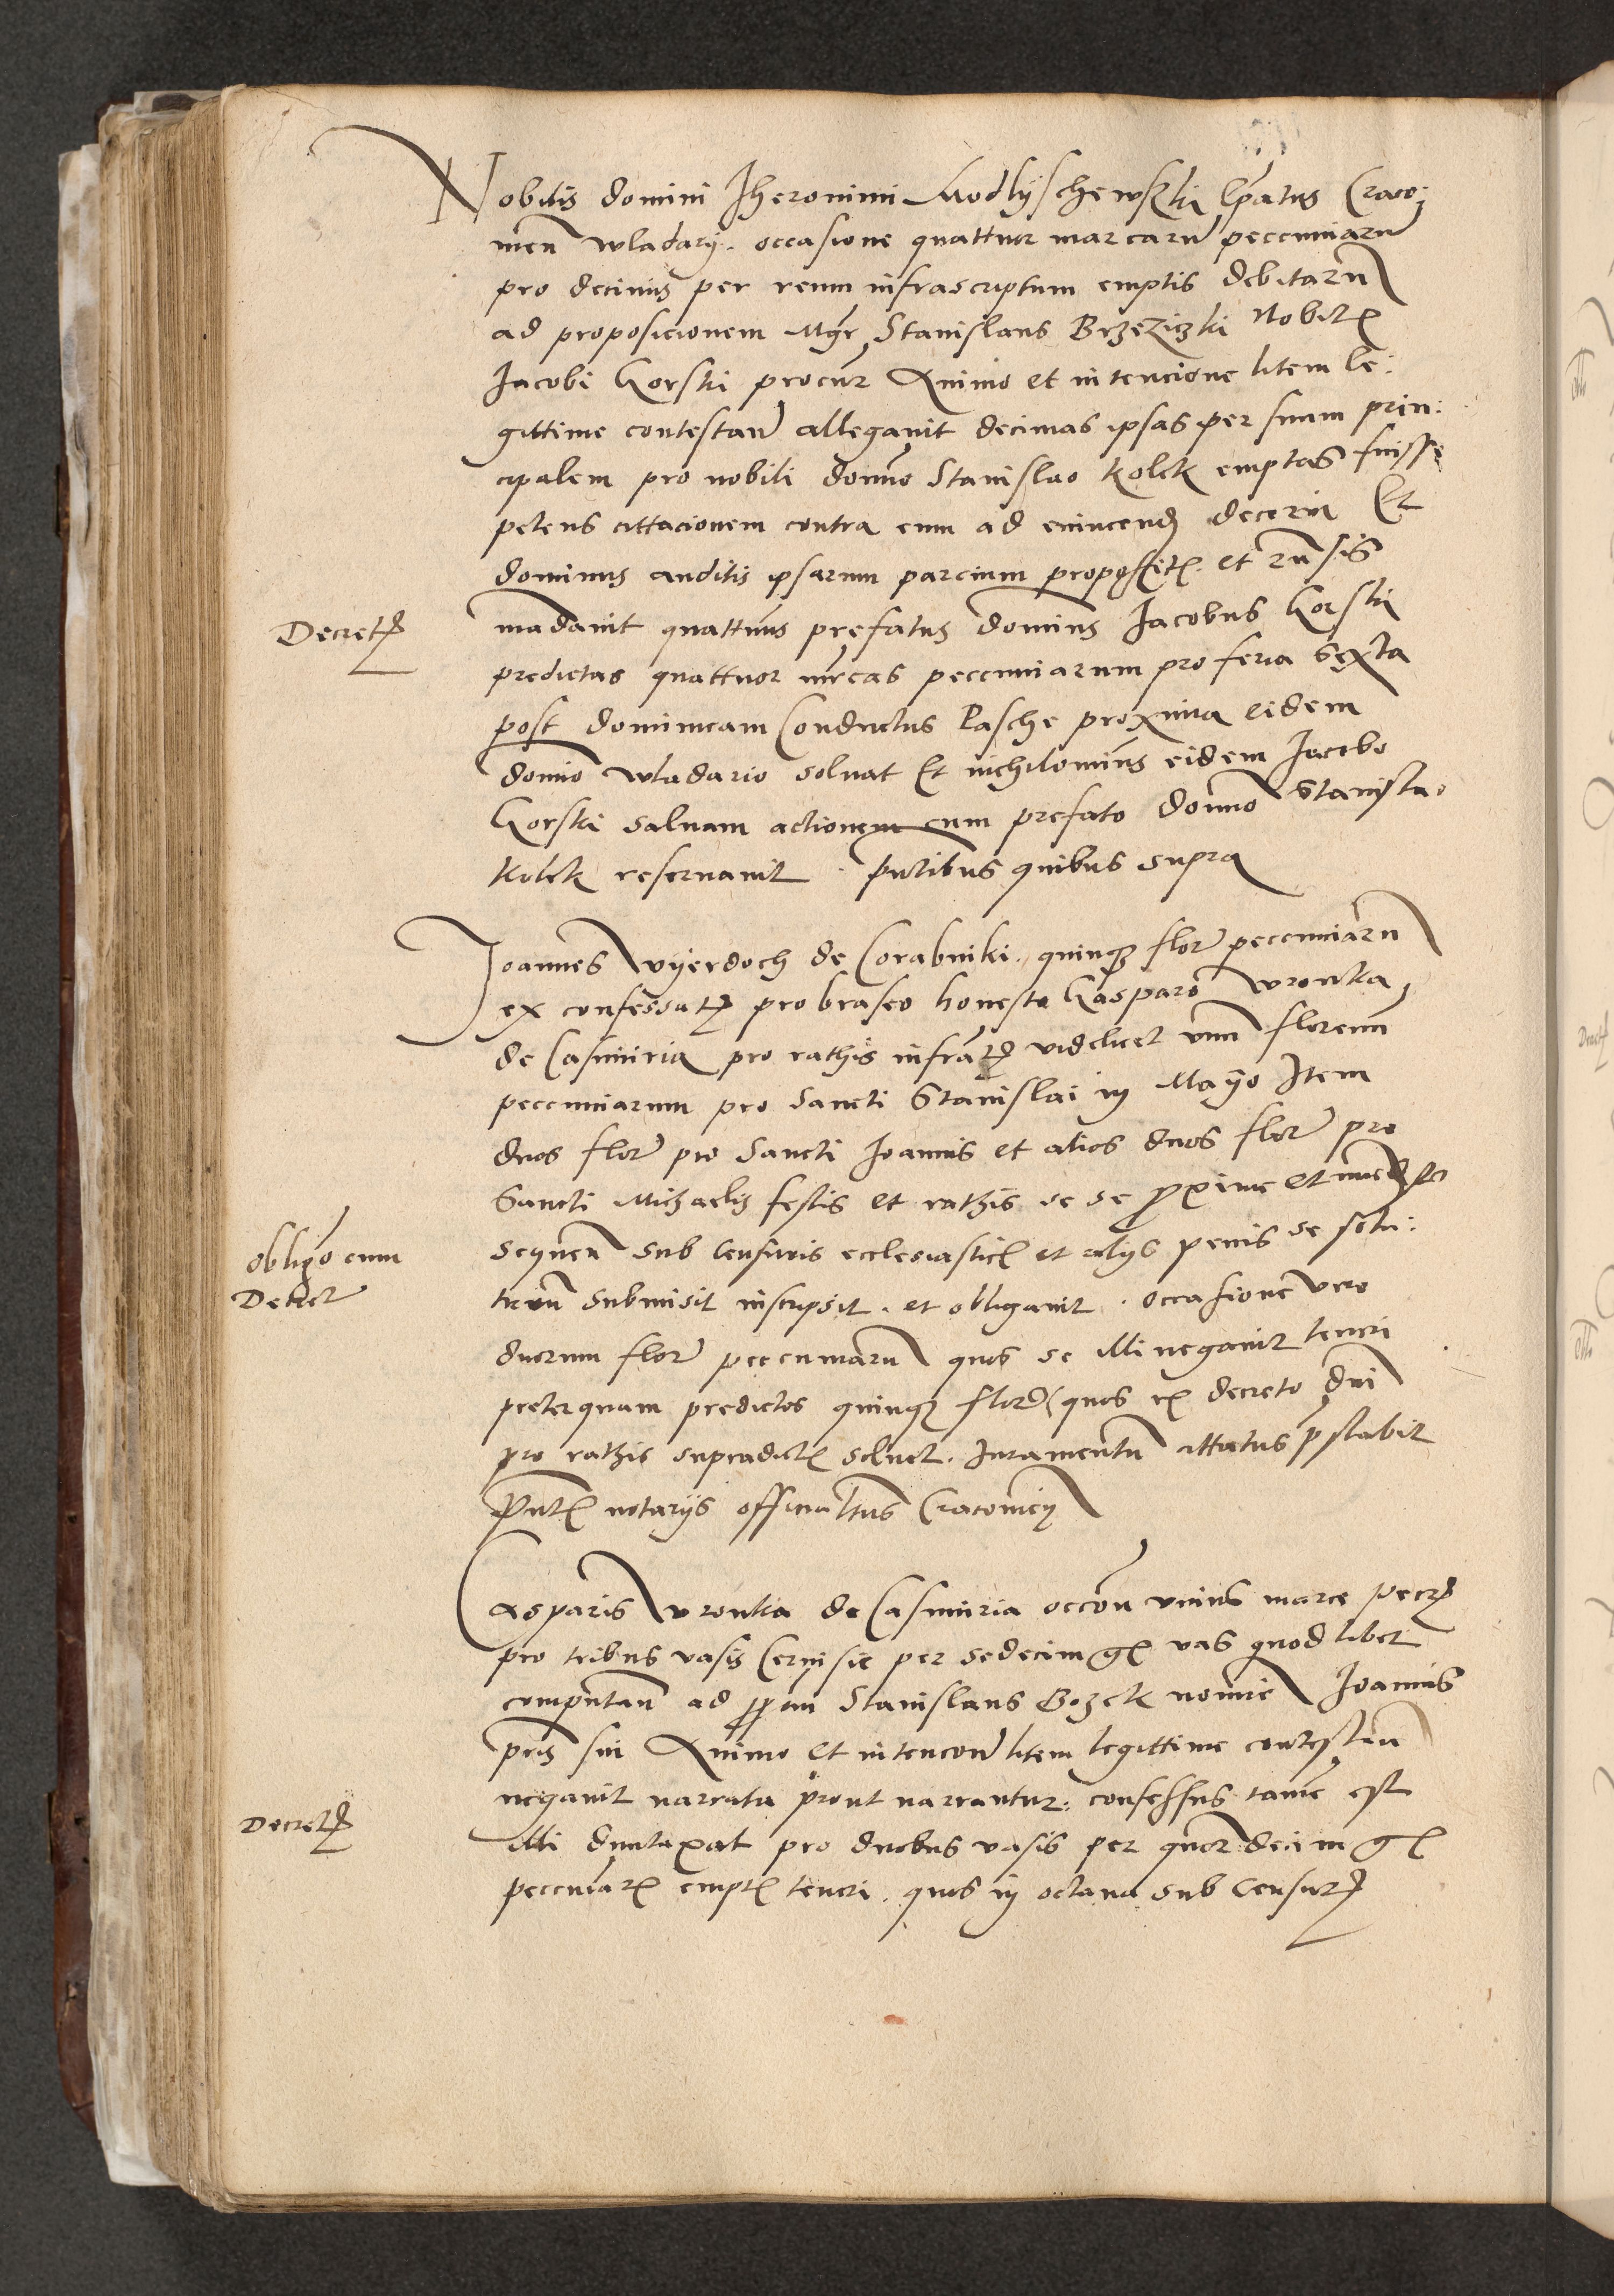 Nobilis domini Jheronimi Modlyschewski Epatus Craco:
vien wladarij. occasione quattuor marcarū pecuniarū
pro decimis per reum infrascriptum emptis debitarū
ad proposicionem Mgr Stanislaus Brzeziczki Nobil
Jacobi Gorski procur Animo et intencione litem le:
gittime contestan allegavit decimas ipsas per suum prin:
cipalem pro nobili domino Stanislao Kolek emptas fuisse
petens cittacionem contra eum ad evincend decerni Et
dominus auditis ipsarum parcium proposit et rūsis
Decret
madavit quattinus prefatus dominus Jacobus Gorski
predictas quattuor mrcas pecuniarum pro feria sexta
post dominicam Conductus Pasche proxima eidem
domino wladario solvat Et nichilominus eidem Jacobo
Gorski salvam actionem cum prefato domino Stanislao
Kolek reservavit. pntibus quibus supra
Joannes Vyerdoch de Corabniki. quinqz flor pecuniarū
ex confessat pro braseo honesto Gasparo Wronka
de Casimiria pro rathis infrat videlicet unū florenū
pecuniarum pro Sancti Stanislai in Mayo Item
duos flor pro Sancti Joannis et alios duos flor pro
Sancti Michaelis festis et rathis se se proxime et immediate
obligo cum
Decret
sequen sub censuris ecclesiastic et alijs penis se solu:
turū submisit inscripsit. et obligavit. occasione vero
duorum flor pecuniarū quos se illi negavit teneri
preterquam predictos quinqz flor quos ex decreto dni
pro rathis supradict solvet. Juramentū cittatus pstabit
Pntˉ notarijs officialtus Cracovien
Casparis Wronka de Casimiria occōn unius marce pecr
pro tribus vasis Cervisie per sedecim gr vas quodlibet
computan ad ppōm Stanislaus Bozek nomie Joannis
pris sui Animo et intencon litem legittime contestan
negavit narrata prout narrantur: confessus tamē est
Decret
illi duntaxat pro duobus vasis per quordecim gr
pecuniar empt teneri. quos in octava sub censur